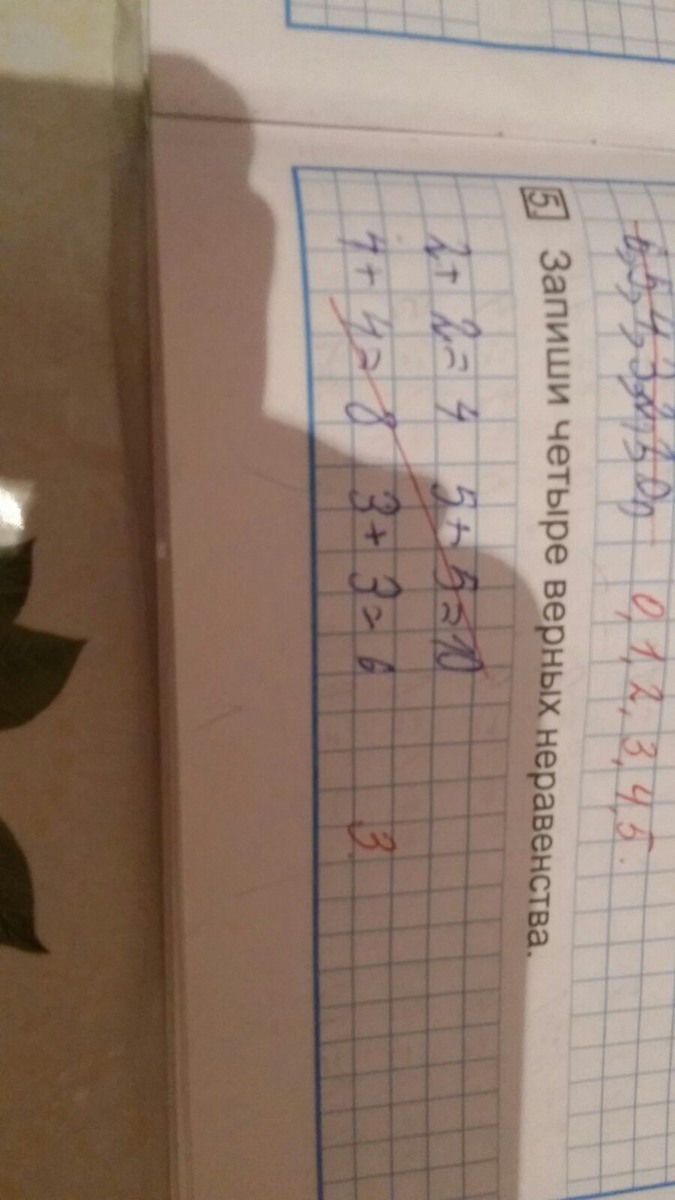 6, 5, 4, 3, 2, 1, 0, 0, 1, 2, 3, 4, 5.
5. Запиши четыре верных неравенства.
2 + 2 = 4 5 + 5 = 10
4 + 4 = 8 3 + 3 = 6 3